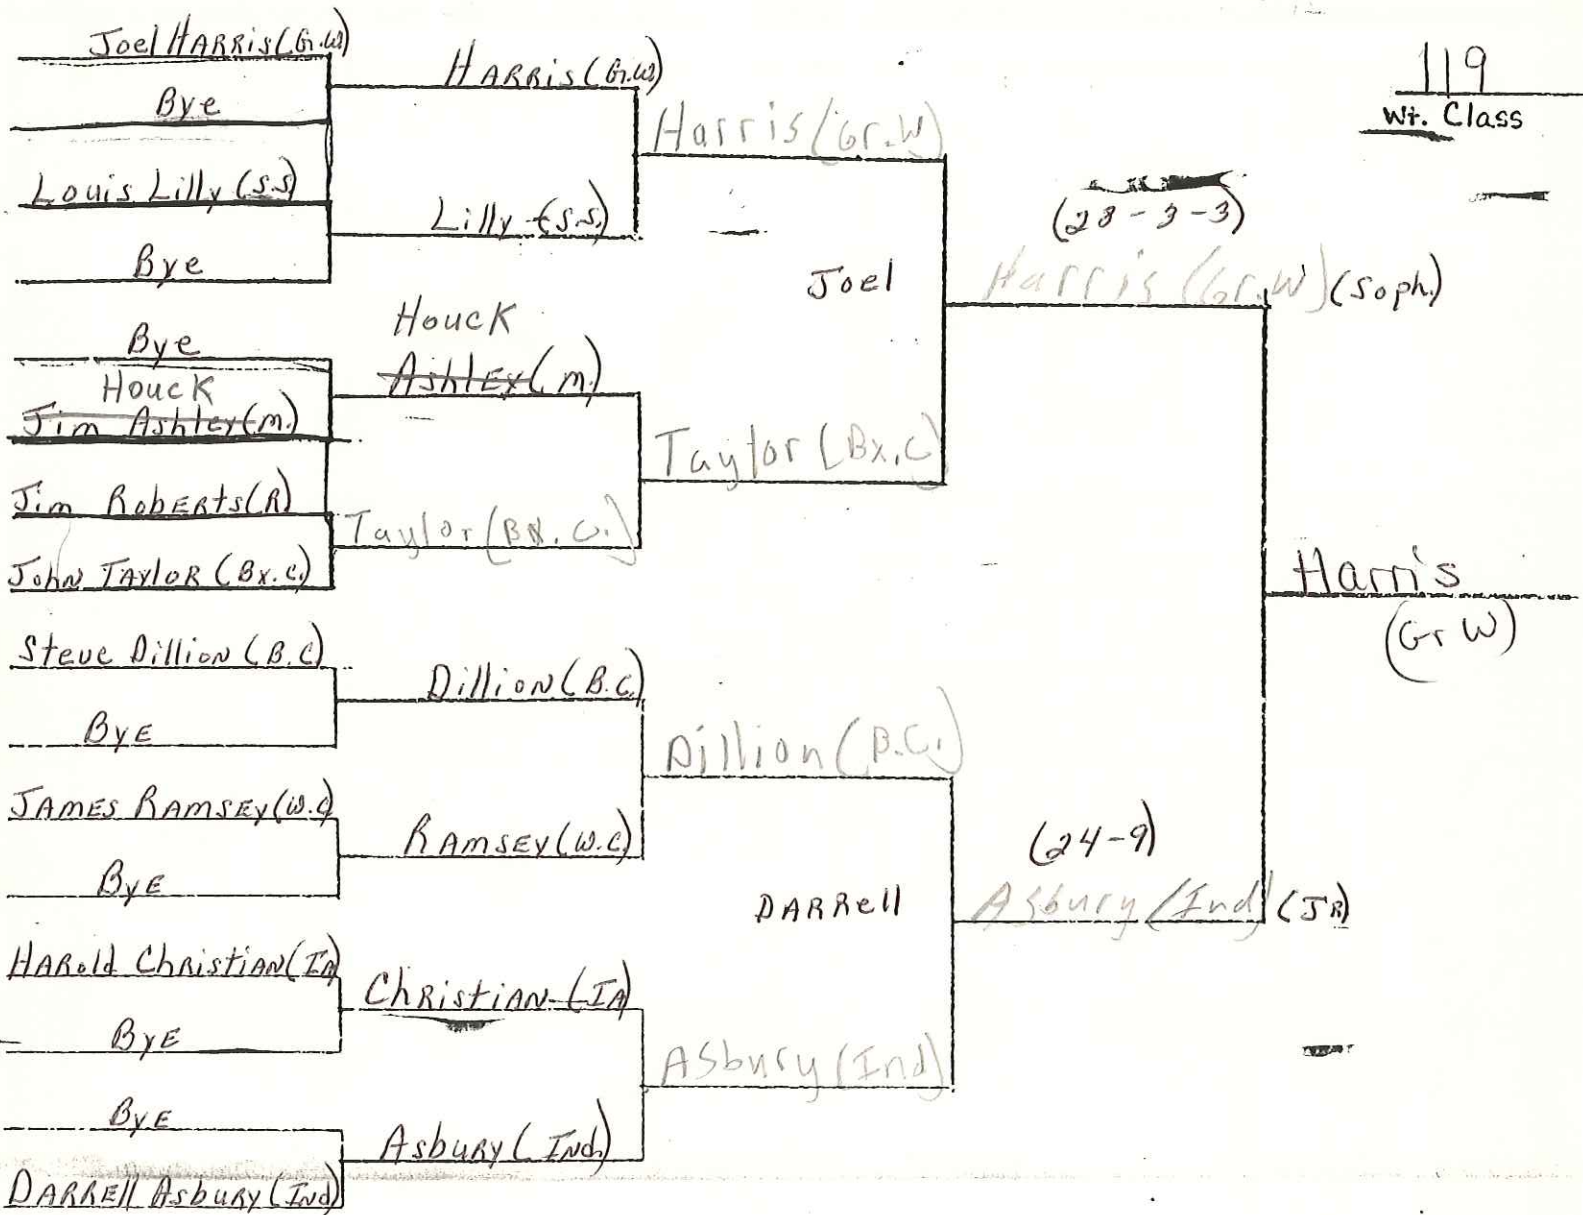 119
Wt. Class
Joel HARRIS (Gr.W)
Bye
Louis Lilly (S.S)
Bye
Bye
Houck
Jim Ashley (M.)
Jim Roberts (R)
John TAYLOR (Bx.C.)
Steve Dillion (B.C)
ByE
JAMES RAMSEY (W.C)
ByE
HARold Christian (IA)
ByE
ByE
DARRELL Asbury (Ind)
HARRIS (Gr.W)
Lilly (S.S.)
Houck
Ashley (M.)
Taylor (Bx.C.)
Dillion (B.C.)
RAMSEY (W.C.)
Christian (IA)
Asbury (Ind.)
Harris (Gr.W)
Taylor (Bx.C)
Dillion (B.C.)
Asbury (Ind)
Joel
(28-3-3)
Harris (Gr.W) (Soph.)
DARRell
(24-9)
Asbury (Ind) (JR)
Harris
(Gr W)